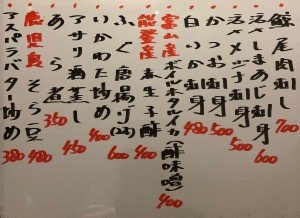 鯨尾肉刺し 700
活〆しまあじ刺 600
活〆メジナ刺 500
かつお刺身 500
白いか刺身 480
富山産ボイルホタルイカ(酢味噌) 400
能登産 生子酢 400
ふぐ唐揚 600
いかわた炒め 400
アサリ酒蒸し 450
あら煮 350
鹿児島そら豆 480
アスパラバター炒め 380